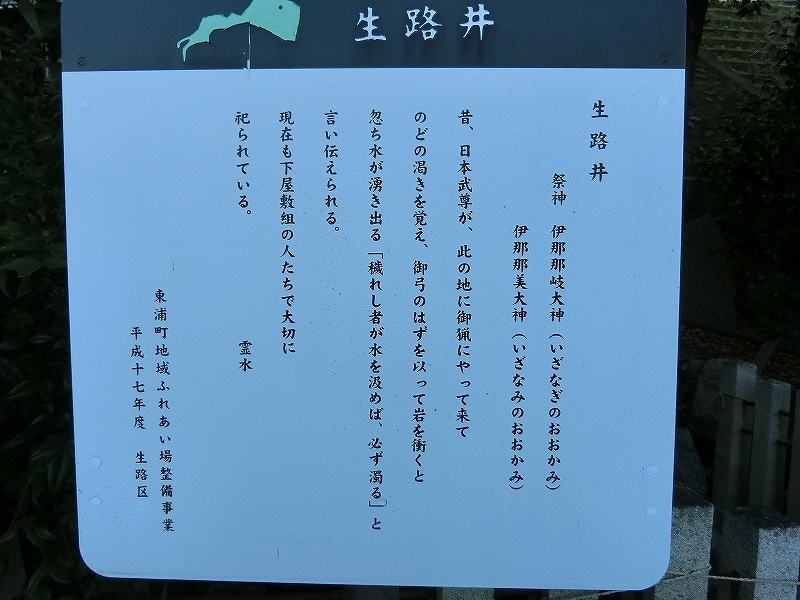 生路井
生路井
祭神 伊那那岐大神（いざなぎのおおかみ）
伊那那美大神（いざなみのおおかみ）
昔、日本武尊が、此の地に御猟にやって来て
のどの渇きを覚え、御弓のはずを以って岩を衝くと
忽ち水が湧き出る「穢れし者が水を汲めば、必ず濁る」と
言い伝えられる。
現在も下屋敷組の人たちで大切に
祀られている。 霊水
東浦町地域ふれあい場整備事業
平成十七年度 生路区